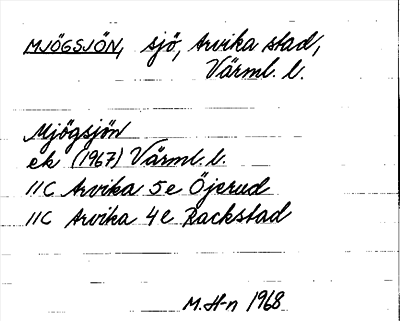 MJÖGSJÖN, sjö, Arvika stad,
Värml. l.
Mjögsjön
ek (1967) Värml. l.
11C Arvika 5e Öjerud
11C Arvika 4e Rackstad
M. H-n 1968